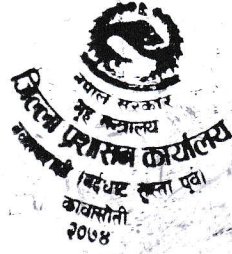 नेपाल सरकार
गृह मन्त्रालय
जिल्ला प्रशासन कार्यालय
(बर्दघाट सुस्ता पूर्व)
कावासोती
२०७४